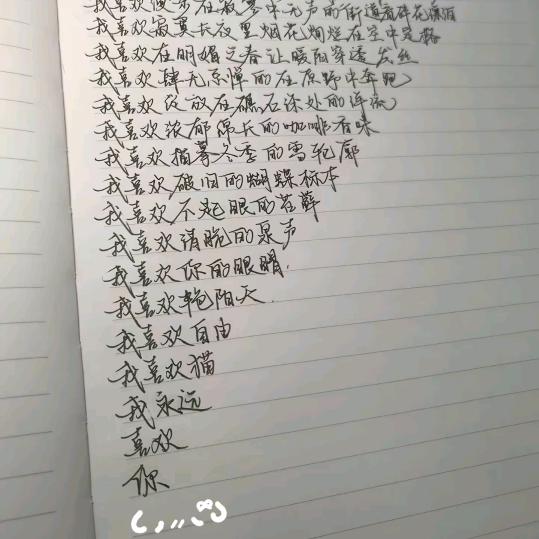 我喜欢漫步在寂寥中无声的街道看碎花
我喜欢寂寞长夜里烟花绚烂在空中
我喜欢在明媚之春让暖阳穿透发丝
我喜欢肆无忌惮的在原野中奔跑
我喜欢绽放在礁石深处的浮
我喜欢浓郁绵长的咖啡香味
我喜欢描摹冬季的雪轮廓
我喜欢破旧的蝴蝶标本
我喜欢不起眼的苔藓
我喜欢清脆的泉声
我喜欢你的眼睛.
我喜欢艳阳天.
我喜欢自由
我喜欢猫
我永远
喜欢
你